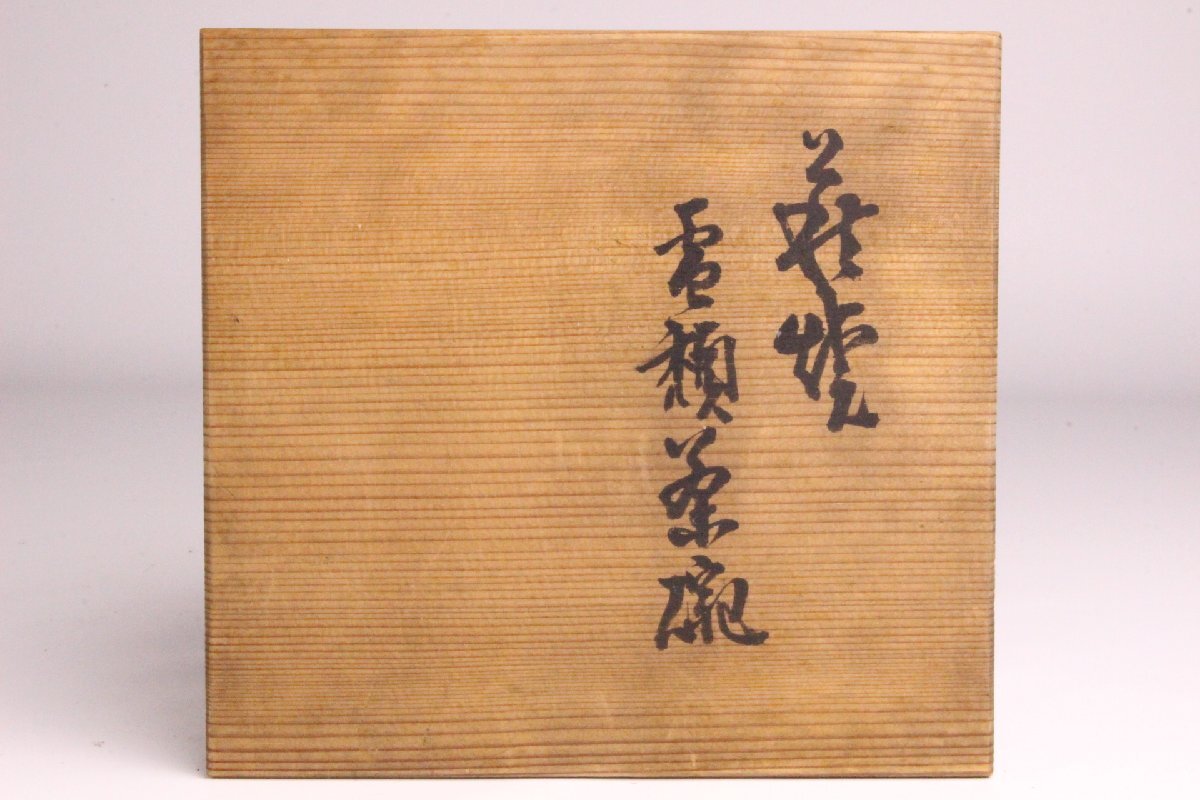 萩焼
雪頽茶碗